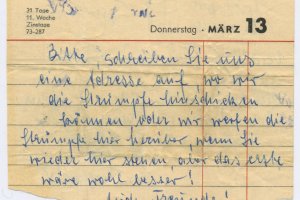 31 Tage
11. Woche
Zinstage
73-287
Donnerstag · MÄRZ 13
Bitte, schreiben Sie uns
eine Adresse auf wo wir
die Strümpfe hinschicken
können oder wir werfen die
Strümpfe hier herüber, wenn Sie
wieder hier stehen aber das erste
wäre wohl besser!